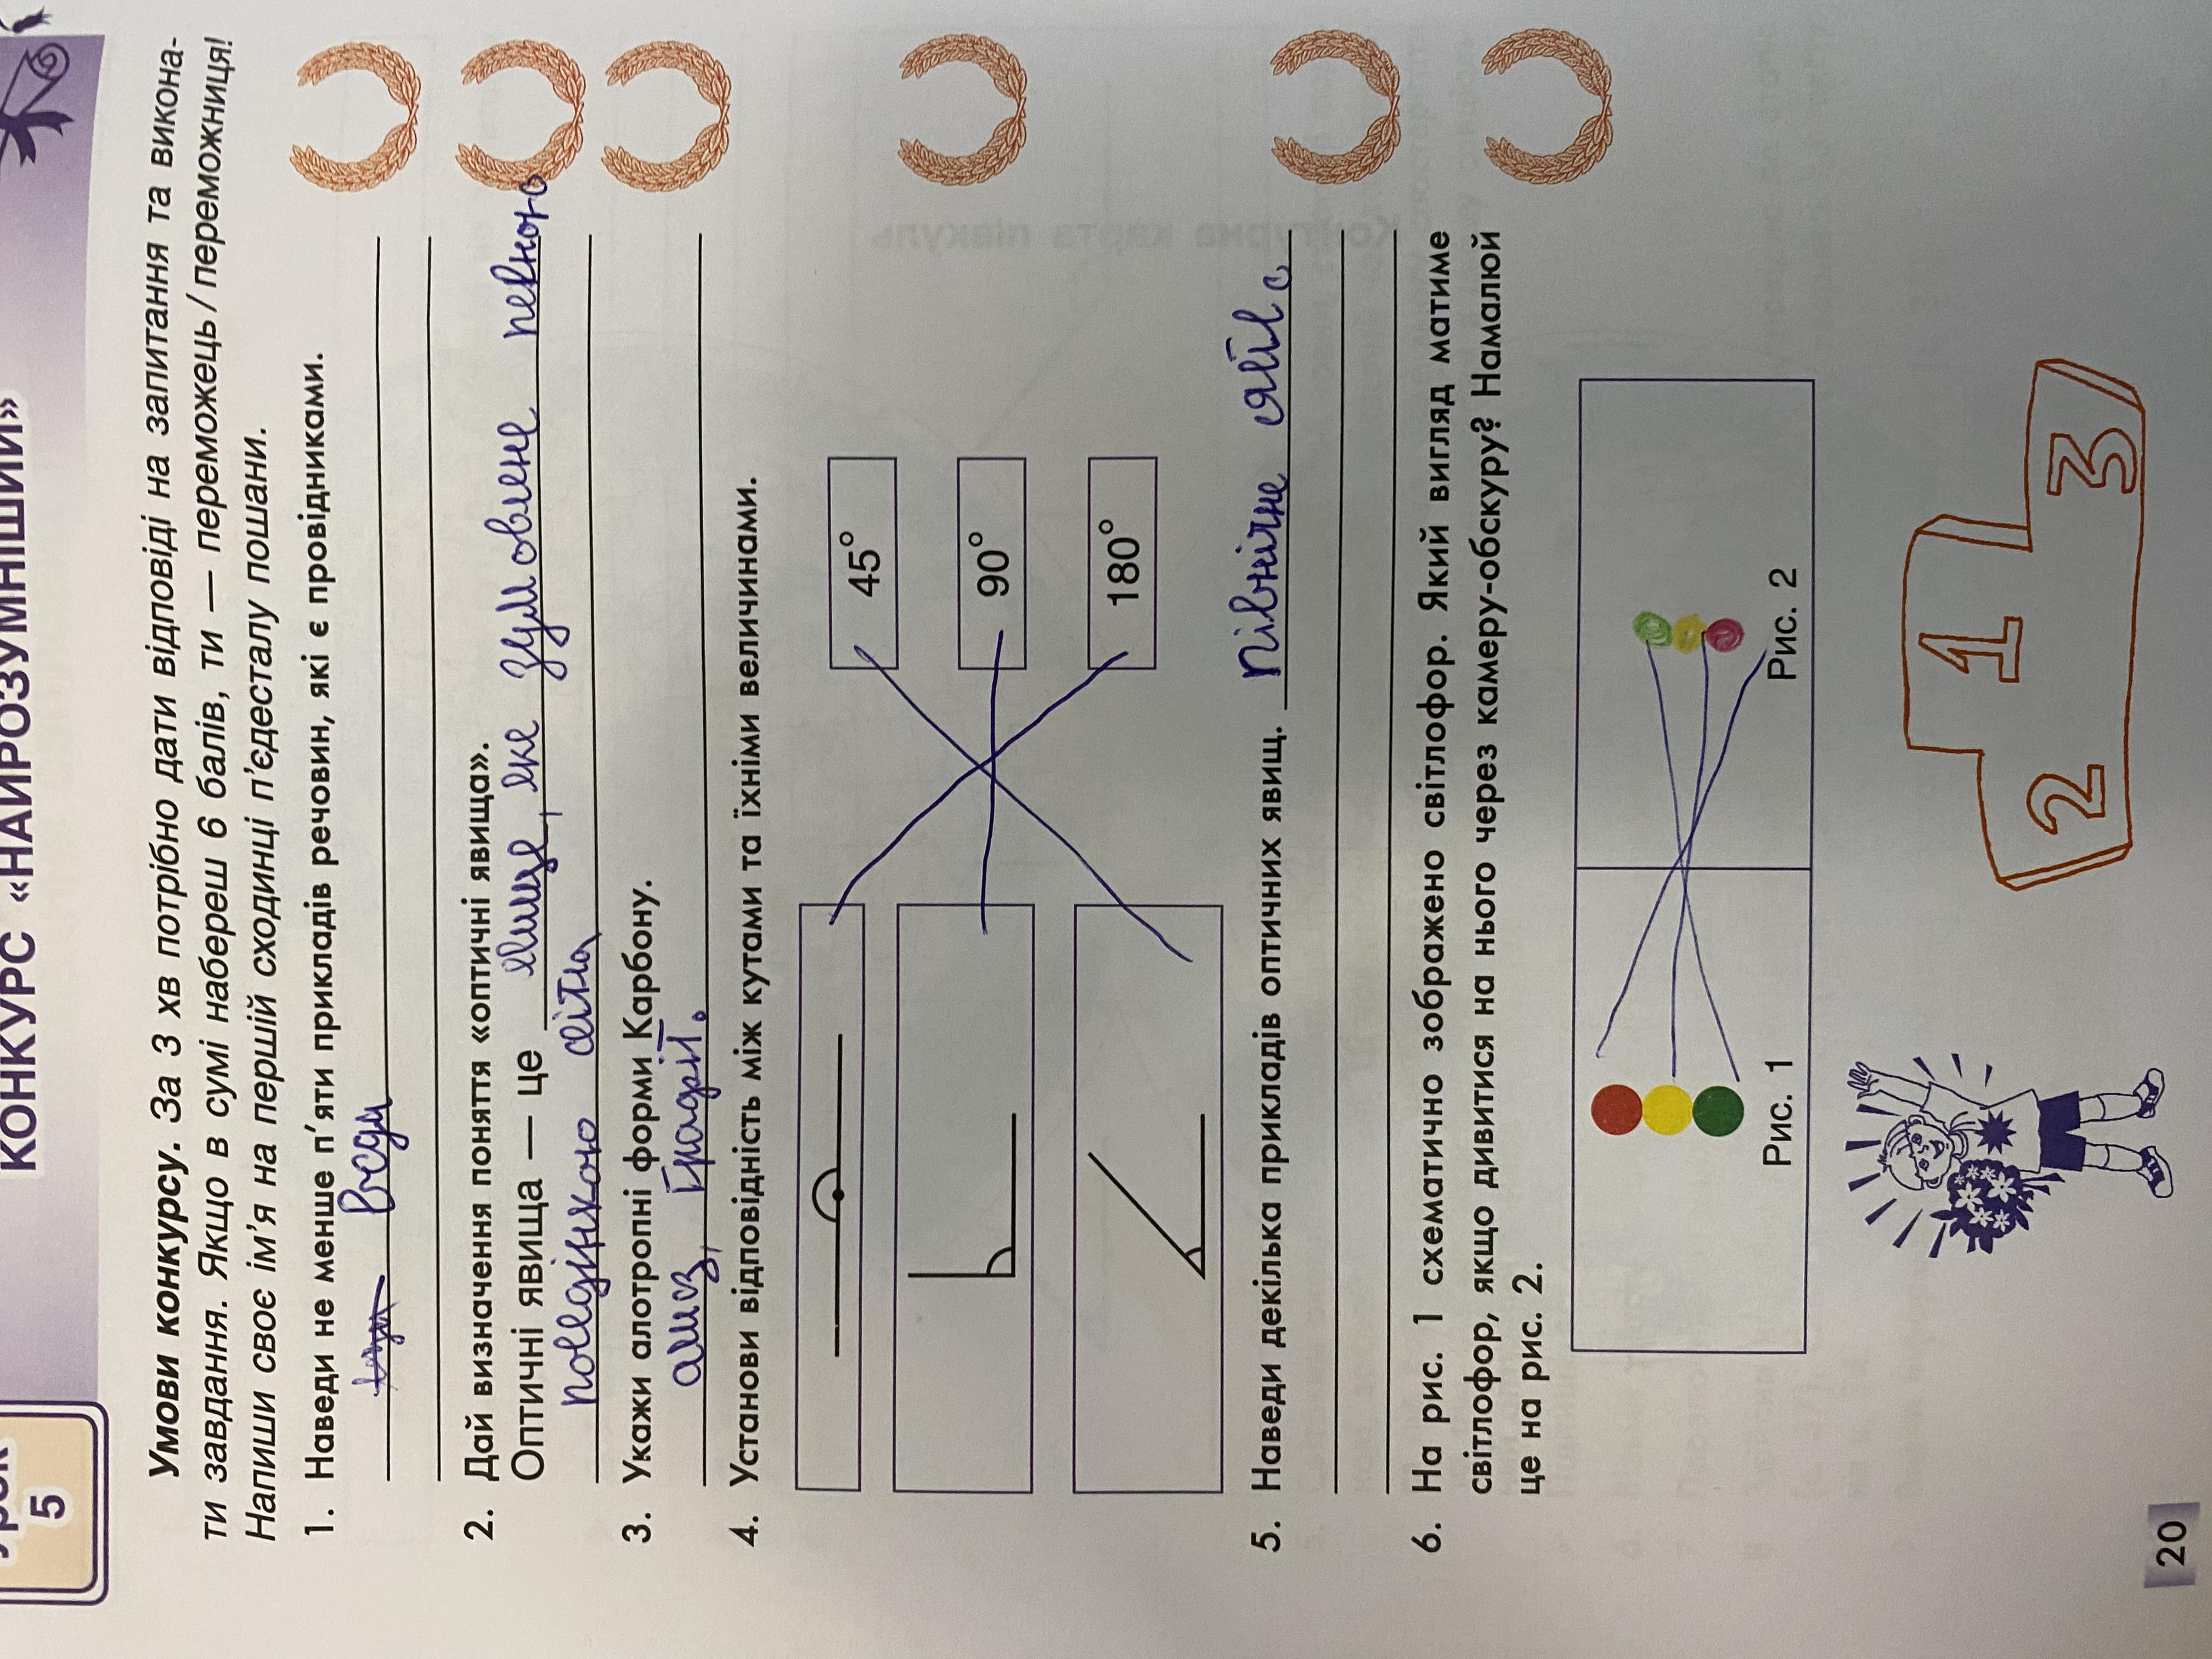 5
КОНКУРС «НАЙРОЗУМНІШИЙ»
Умови конкурсу. За 3 хв потрібно дати відповіді на запитання та викона-
ти завдання. Якщо в сумі набереш 6 балів, ти — переможець / переможниця!
Напиши своє ім'я на першій сходинці п'єдесталу пошани.
1. Наведи не менше п'яти прикладів речовин, які є провідниками.
вода
2. Дай визначення поняття «оптичні явища».
Оптичні явища — це явище, яке зумовлене певною
поведінкою світла
3. Укажи алотропні форми Карбону.
алмаз, графіт.
4. Установи відповідність між кутами та їхніми величинами.
45°
90°
180°
5. Наведи декілька прикладів оптичних явищ. Північне сяйво
6. На рис. 1 схематично зображено світлофор. Який вигляд матиме
світлофор, якщо дивитися на нього через камеру-обскуру? Намалюй
це на рис. 2.
Рис. 1 Рис. 2
2 1 3
20